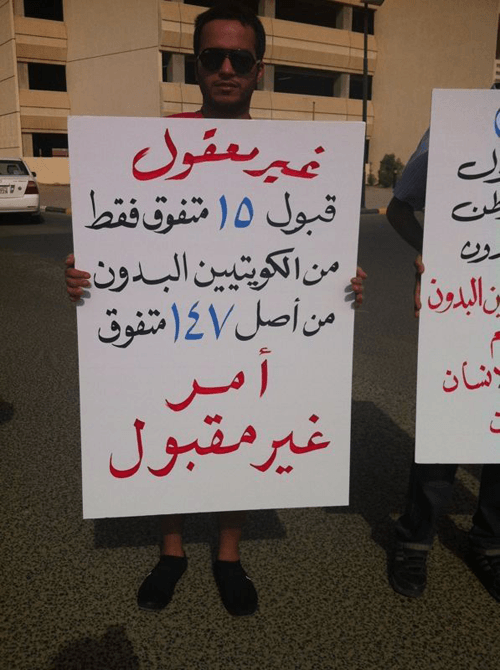 غير معقول
قبول ١٥ متفوق فقط
من الكويتيين البدون
من أصل ١٤٧ متفوق
أمر
غير مقبول
البدون
الانسان